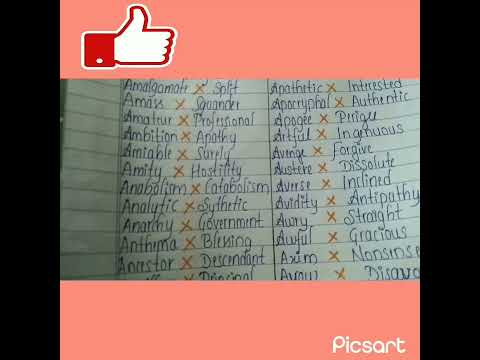 Amalgamate × Split
Amass × Squander
Amateur × Professional
Ambition × Apathy
Amiable × Surely
Amity × Hostility
Anabolism × Catabolism
Analytic × Sythetic
Anarchy × Government
Anthema × Blessing
Ancestor × Descendant
× Principal
Apathetic × Interested
Apocryphal × Authentic
Apogee × Perigee
Artful × Ingenuous
Avenge × Forgive
Austere × Dissolute
Averse × Inclined
Avidity × Antipathy
Awry × Straight
Awful × Gracious
Axiom × Nonsense
×
Picsart